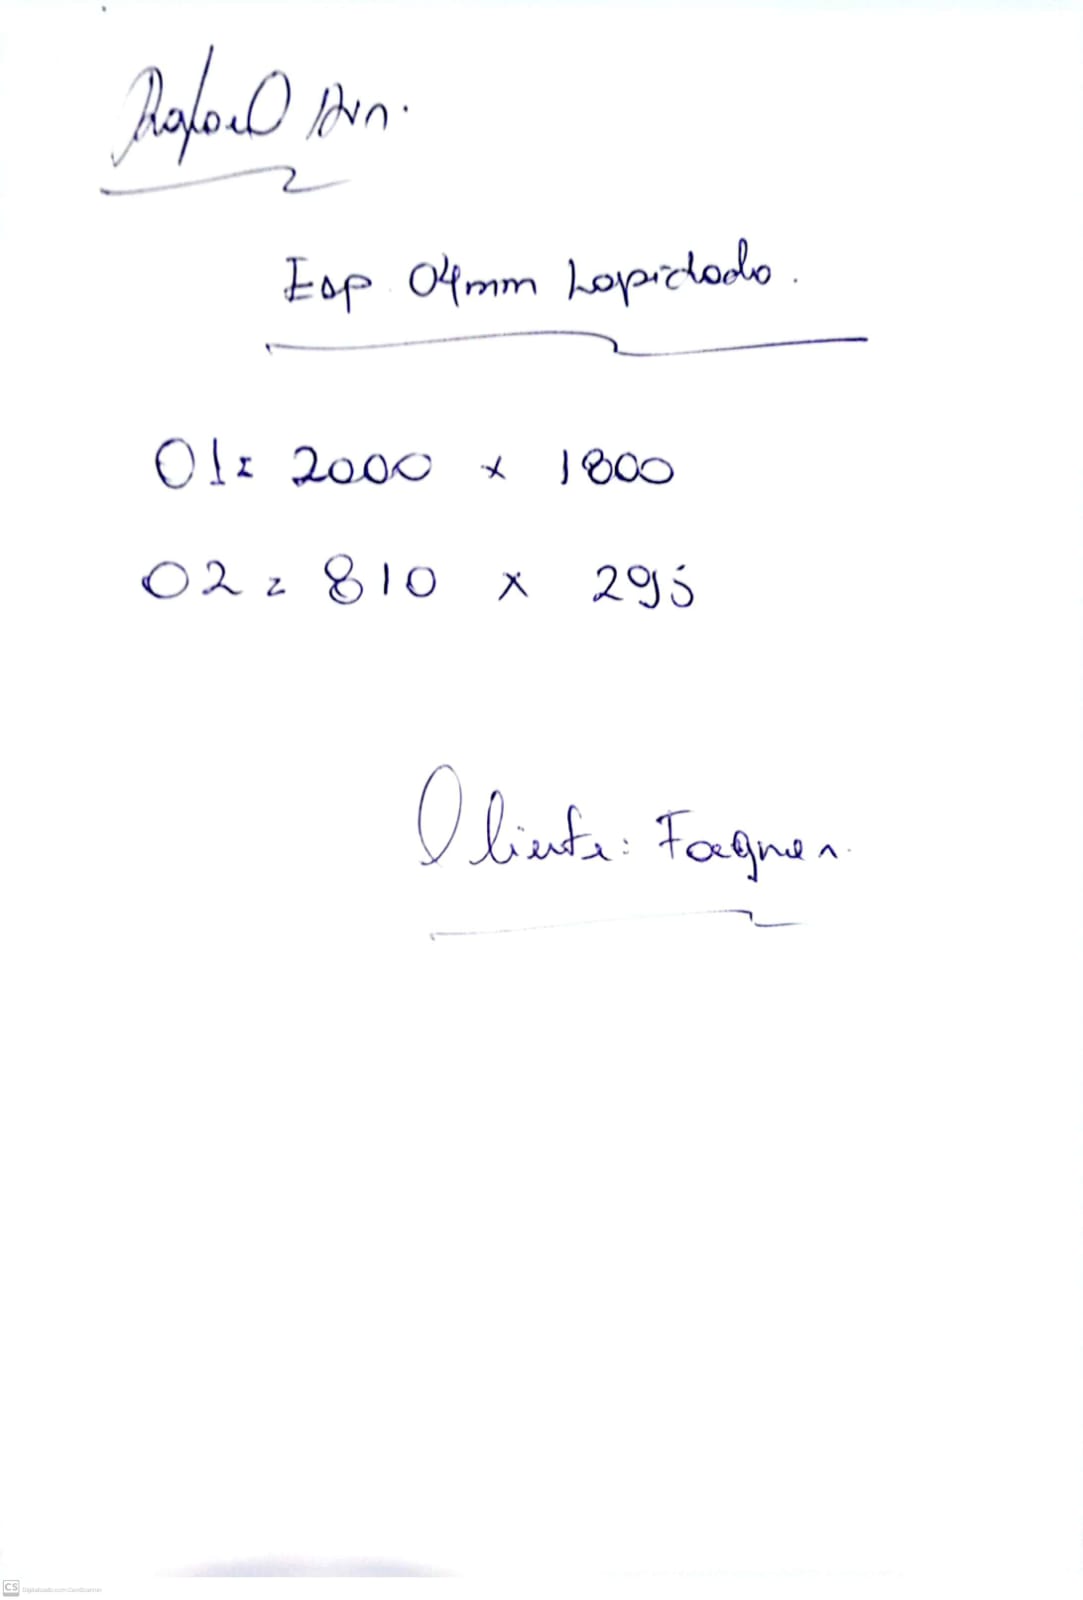 Rafael
Esp 04mm Lapidado.
01 = 2000 x 1800
02 = 810 x 295
Cliente: Fagner.
CS Digitalizado com CamScanner